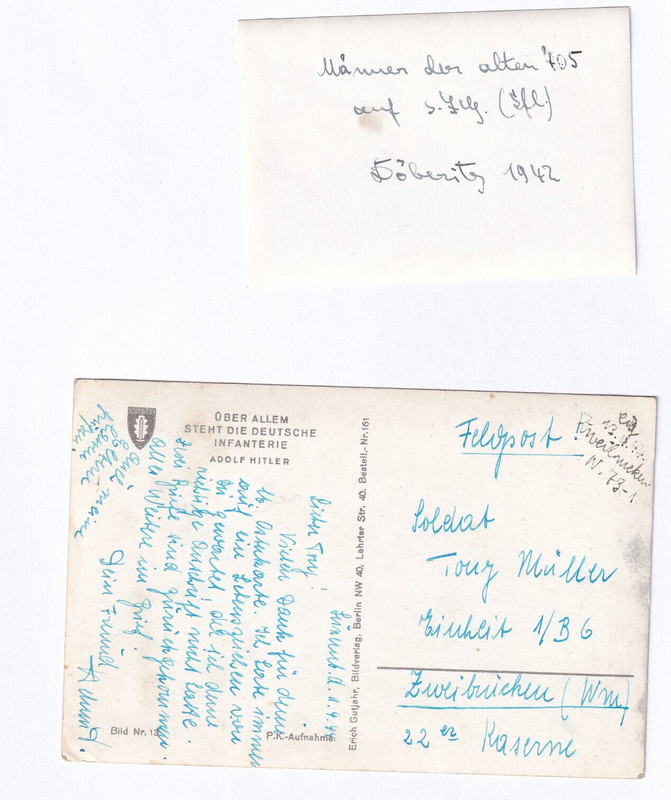 Männer der alten 705
auf s.Zlg. (Sfl.)
Döberitz 1942
ÜBER ALLEM
STEHT DIE DEUTSCHE
INFANTERIE
ADOLF HITLER
Lieber Tony!
Vielen Dank für deine
Ich habe immer
auf ein Lebenszeichen von
dir gewartet, da ich deine
Anschrift nicht hatte.
Zwei Briefe sind zurückgekommen.
Alles Weitere im Brief.
Dein Freund
Bild Nr. 13
P.K.-Aufnahme
Erich Gutjahr, Bildverlag, Berlin NW 40, Lehrter Str. 40. Bestell.-Nr. 161
Feldpost!
Zweibrücken
N. 73-1
Soldat
Tony Müller
Einheit 1/B6
Zweibrücken (Wm)
22er Kaserne